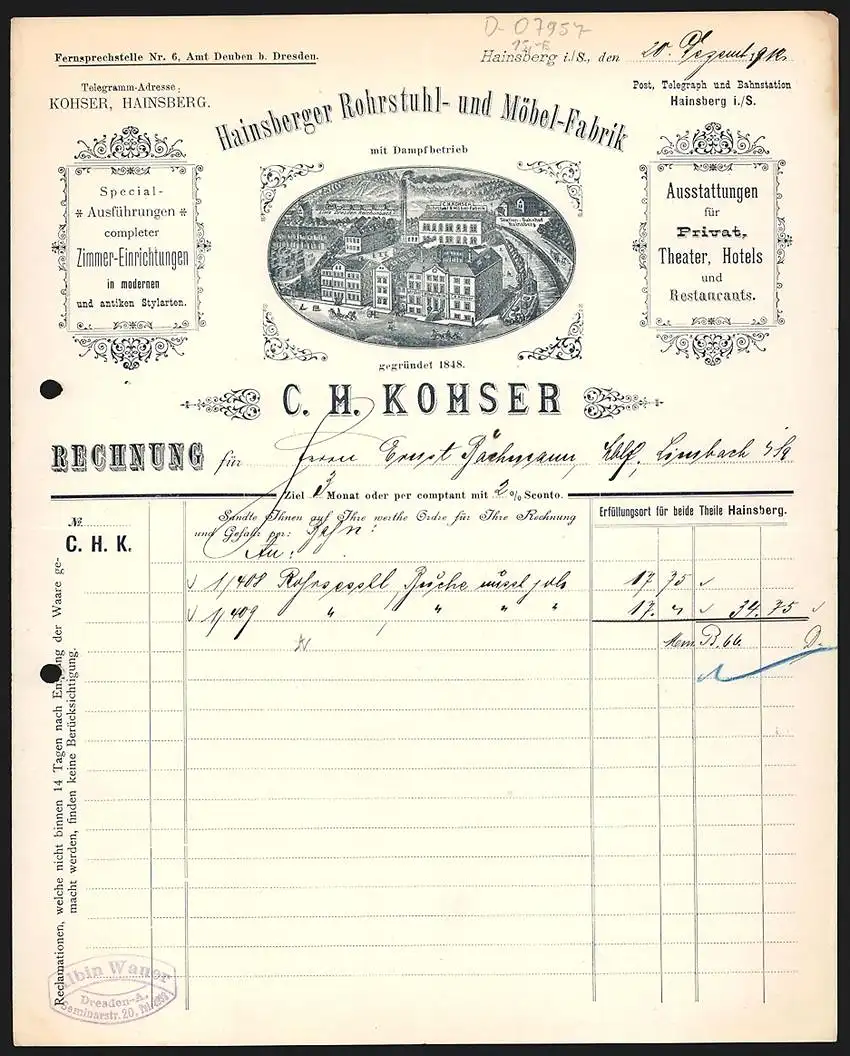 D-07957
Fernsprechstelle Nr. 6, Amt Deuben b. Dresden.
Hainsberg i./S., den 20. Dezemb. 1912.
Telegramm-Adresse:
KOHSER, HAINSBERG.
Post, Telegraph und Bahnstation
Hainsberg i./S.
Hainsberger Rohrstuhl- und Möbel-Fabrik
mit Dampfbetrieb
Special-
Ausführungen
completer
Zimmer-Einrichtungen
in modernen
und antiken Stylarten.
Ausstattungen
für
Privat,
Theater, Hotels
und
Restaurants.
gegründet 1848.
C. H. KOHSER
RECHNUNG für Herrn Ernst Bachmann, Limbach i/Sa
Ziel 3 Monat oder per comptant mit 2 % Sconto.
№
C. H. K.
Sandte Ihnen auf Ihre werthe Ordre für Ihre Rechnung
und Gefahr per: Bahn:
Erfüllungsort für beide Theile Hainsberg.
An:
1/408 Rohrsessel, Buche 17. 75
1/409 " " " " 17. " 34. 75
B. 66. D.
Reclamationen, welche nicht binnen 14 Tagen nach Empfang der Waare ge-
macht werden, finden keine Berücksichtigung.
Albin Waner
Dresden-A.
Seminarstr. 20.